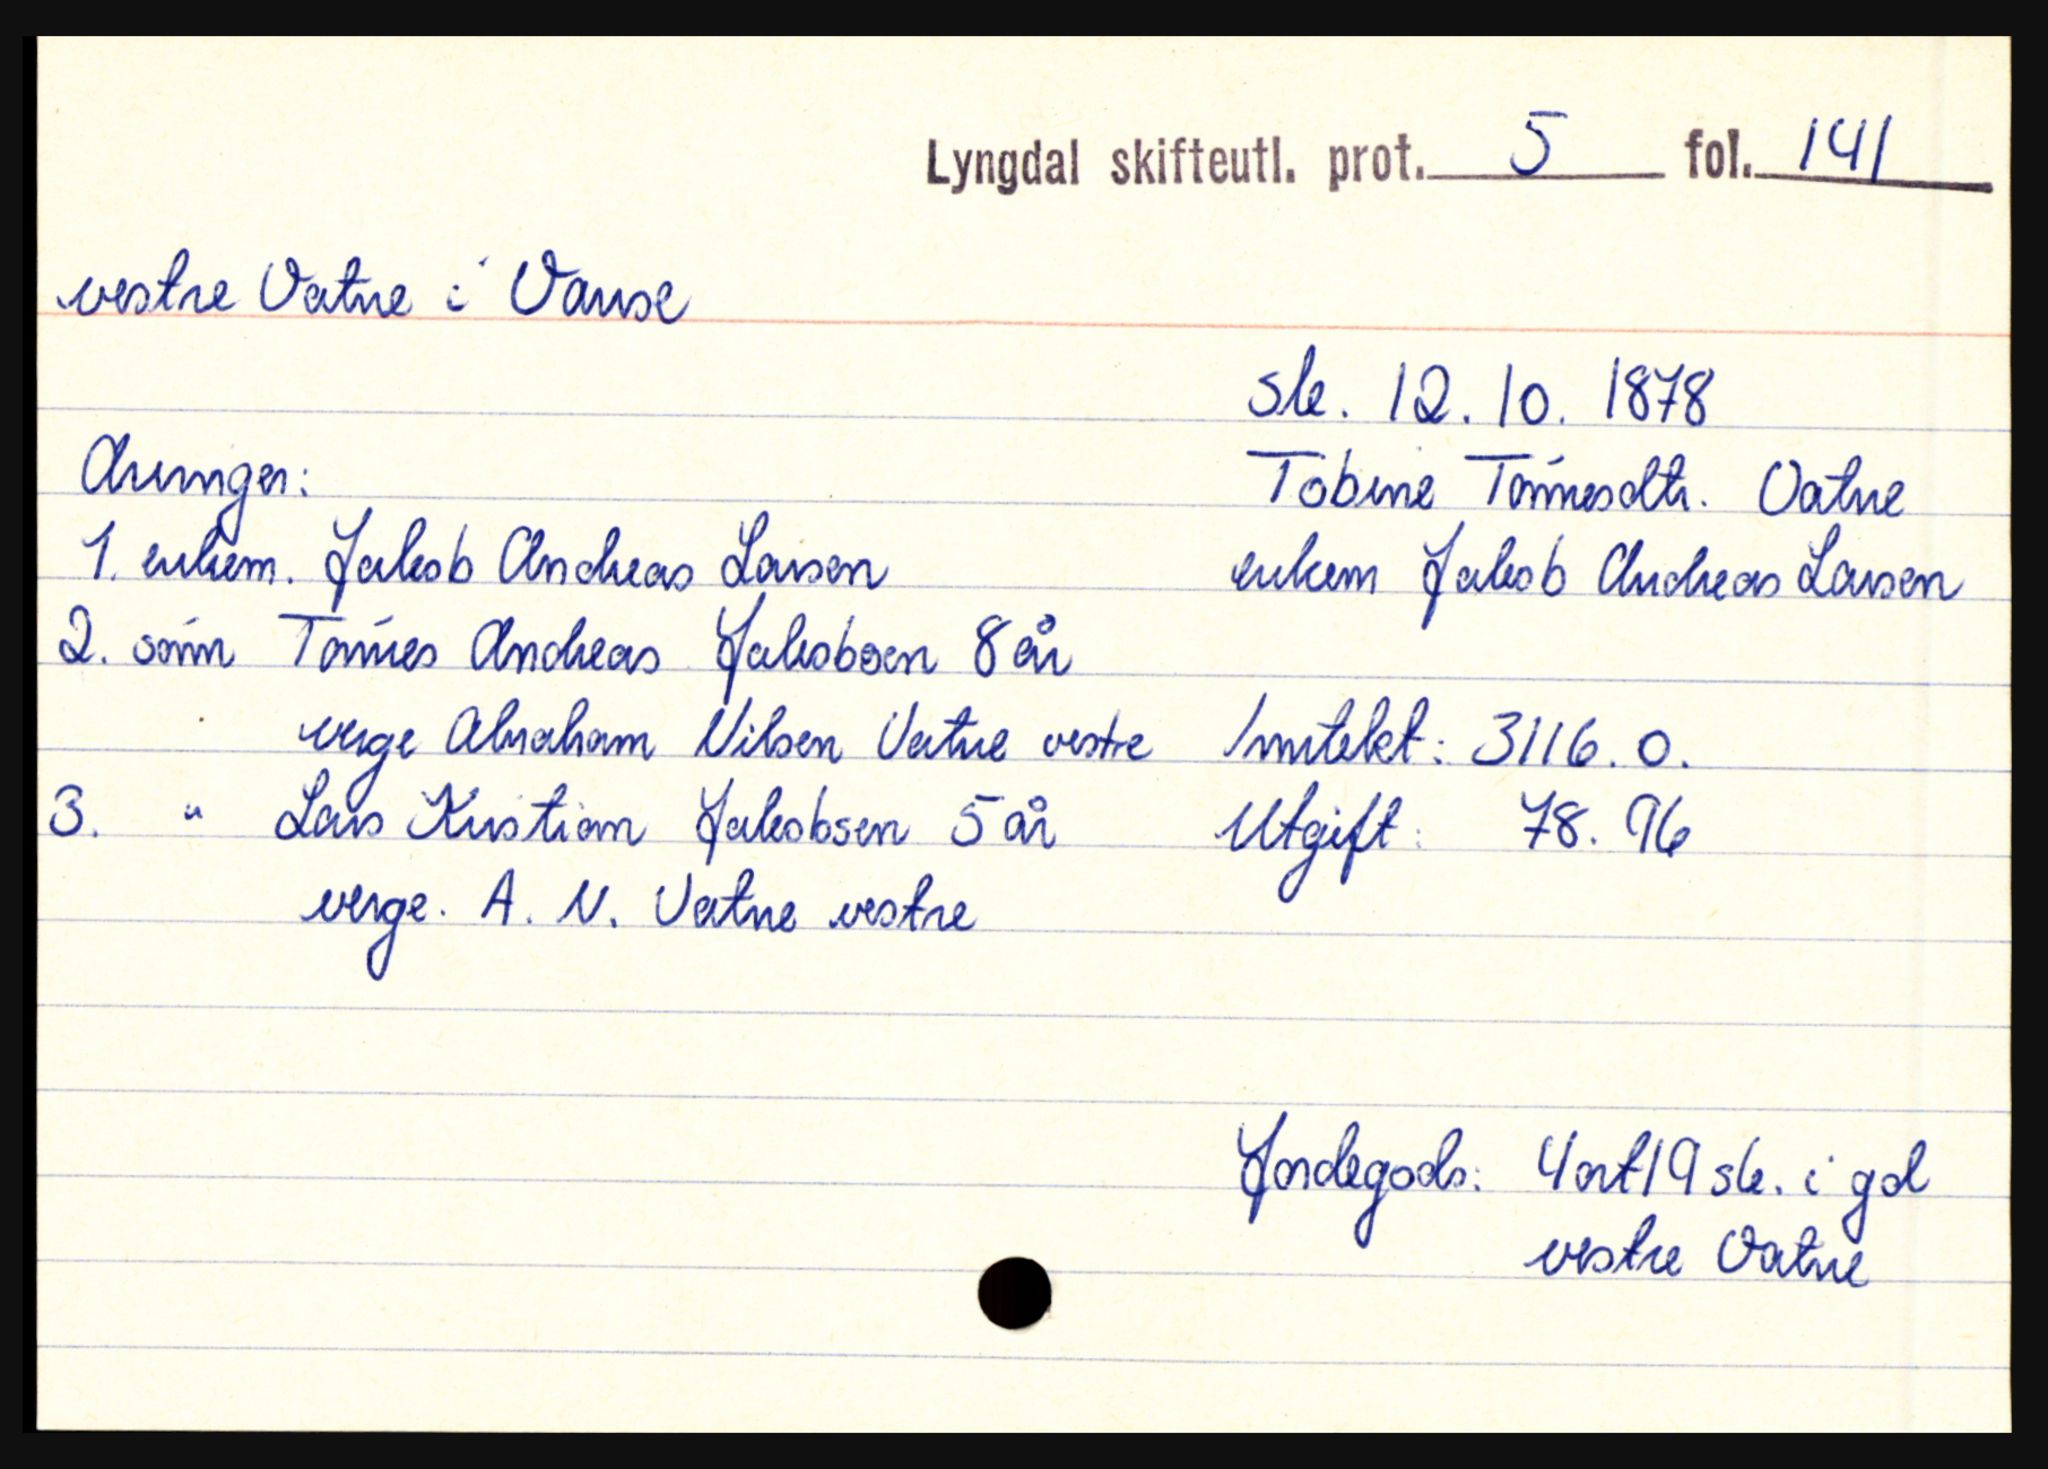 Lyngdal skifteutl. prot. 5 fol. 141
vestre Vatne i Vanse
sk. 12.10. 1878
Tobine Tönnesdtr. Vatne
enkem Jakob Andreas Larsen
Arvinger:
1. enkem. Jakob Andreas Larsen
2. sönn Tönnes Andreas Jakobsen 8 år
verge Abraham Nilsen Vatne vestre
3. " Lars Kristian Jakobsen 5 år
verge. A. N. Vatne vestre
Inntekt: 3116. 0.
Utgift: 78. 96
Jordegods: 4 ort 19 sk. i gd
vestre Vatne